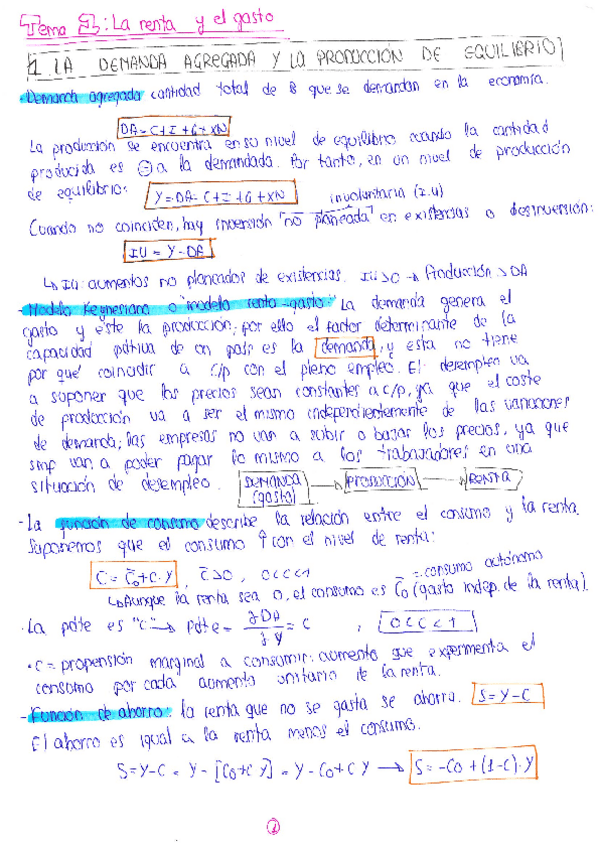 Tema 2: La renta y el gasto
1. LA DEMANDA AGREGADA Y LA PRODUCCIÓN DE EQUILIBRIO
- Demanda agregada cantidad total de B que se demandan en la economía.
DA = C + I + G + XN
La producción se encuentra en su nivel de equilibrio cuando la cantidad
producida es = a la demandada. Por tanto, en un nivel de producción
de equilibrio:
Y = DA = C + I + G + XN
involuntaria (I.U)
Cuando no coinciden, hay inversión "no planeada" en existencias o desinversión:
IU = Y - DA
↳ IU: aumentos no planeados de existencias. IU>0 → Producción > DA
- Modelo Keynesiano o "modelo renta-gasto:" La demanda genera el
gasto y éste la producción; por ello el factor determinante de la
capacidad pdtiva de un país es la demanda, y esta no tiene
por qué coincidir a c/p con el pleno empleo. El desempleo va
a suponer que los precios sean constantes a c/p, ya que el coste
de producción va a ser el mismo independientemente de las variaciones
de demanda; las empresas no van a subir o bajar los precios, ya que
smp van a poder pagar lo mismo a los trabajadores en una
situación de desempleo. DEMANDA (gasto) → PRODUCCIÓN → RENTA
- La función de consumo describe la relación entre el consumo y la renta.
Suponemos que el consumo ↑ con el nivel de renta:
C = C̄0 + c·Y , C̄>0 , 0<c<1 = consumo autónomo
↳ Aunque la renta sea 0, el consumo es C̄0 (gasto indep. de la renta)
· La pdte es "c" → Pdte = ∂DA/∂Y = c , 0<c<1
· c = propensión marginal a consumir: aumento que experimenta el
consumo por cada aumento unitario de la renta.
- Función de ahorro: la renta que no se gasta se ahorra. S = Y - C
El ahorro es igual a la renta menos el consumo.
S = Y - C = Y - [C0 + c Y] = Y - C0 + c Y → S = -C0 + (1-c)·Y
1